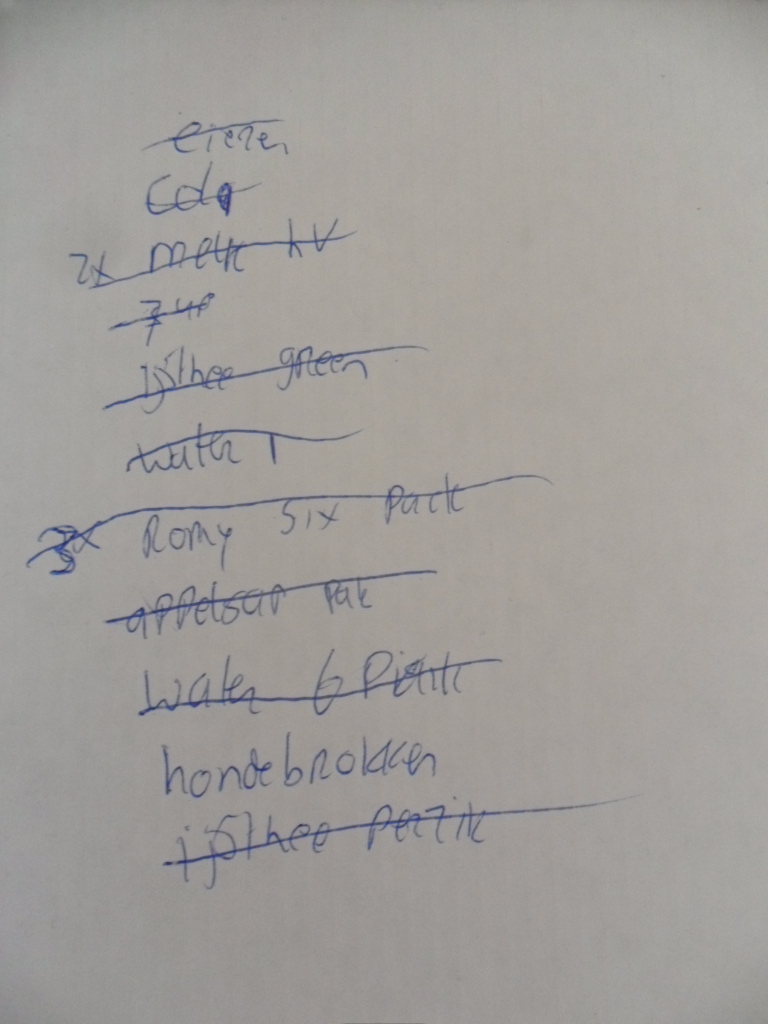 eieren
Cola
2x melk hv
7 up
ijsthee green
water 1
3x Romy six pack
appelsap pak
water 6 pak
hondebrokken
ijsthee perzik